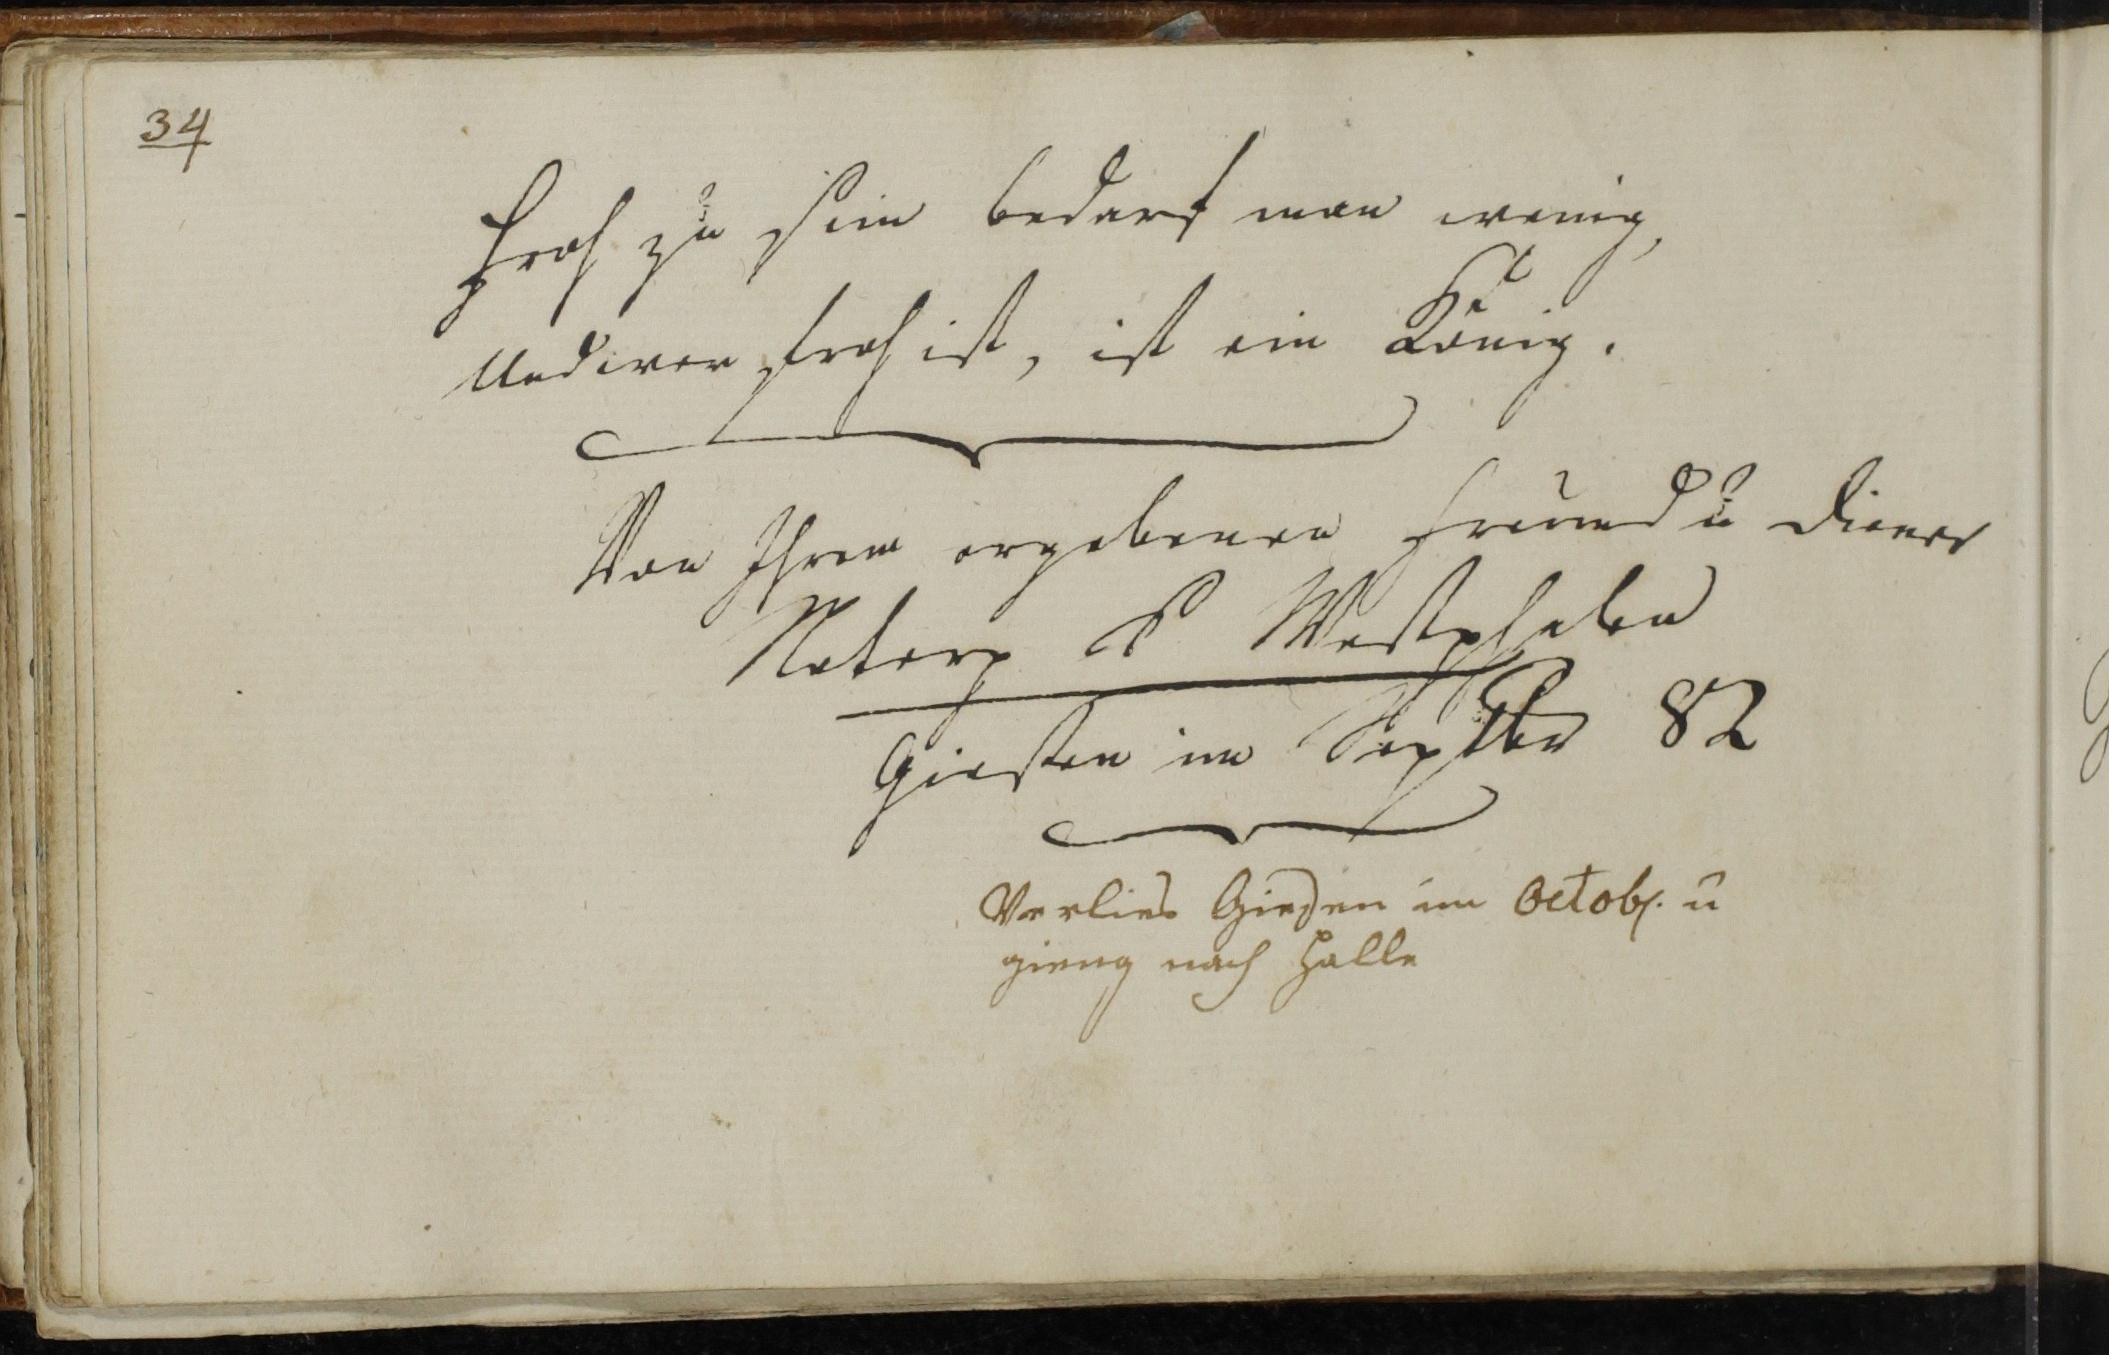 34
Froh zu sein bedarf man wenig,
Und wer froh ist, ist ein König.
Von Ihrem ergebenen Freund u Diener
Natorp Westphalen
Giesen im Septbr 82
Verlies Giesen im Octobr. u
gieng nach Halle